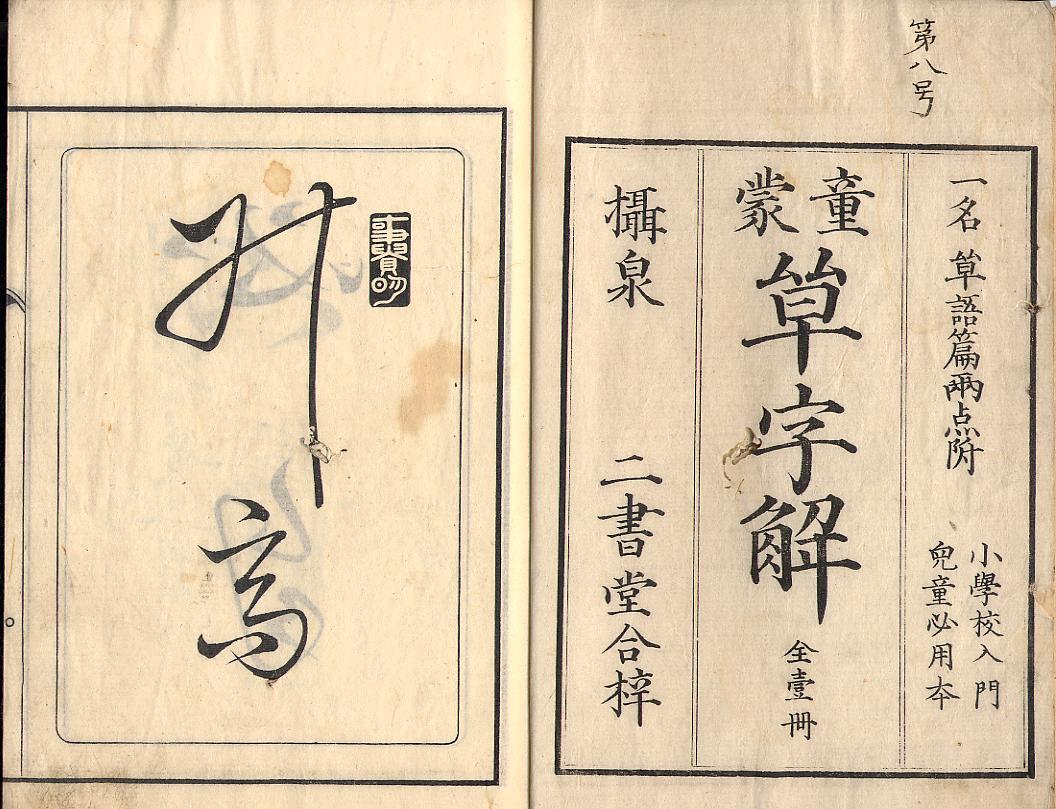 第八号
一名 草語篇兩点附
小學校入門
兒童必用本
童蒙
草字解
全壹冊
攝泉 二書堂合梓
升高